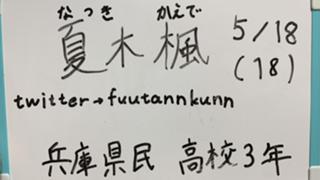 なつき かえで
夏木楓 5/18
(18)
twitter→fuutannkunn
兵庫県民 高校3年